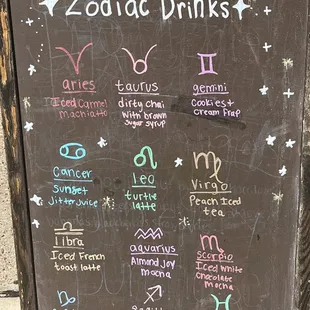 Zodiac Drinks
aries
Iced Carmel
machiatto
taurus
dirty chai
with brown
sugar syrup
gemini
Cookies +
Cream Frap
Cancer
Sunset
Jitter Juice
leo
turtle
latte
Virgo
Peach Iced
tea
libra
Iced French
toast latte
aquarius
Almond joy
mocha
Scorpio
Iced white
chocolate
mocha